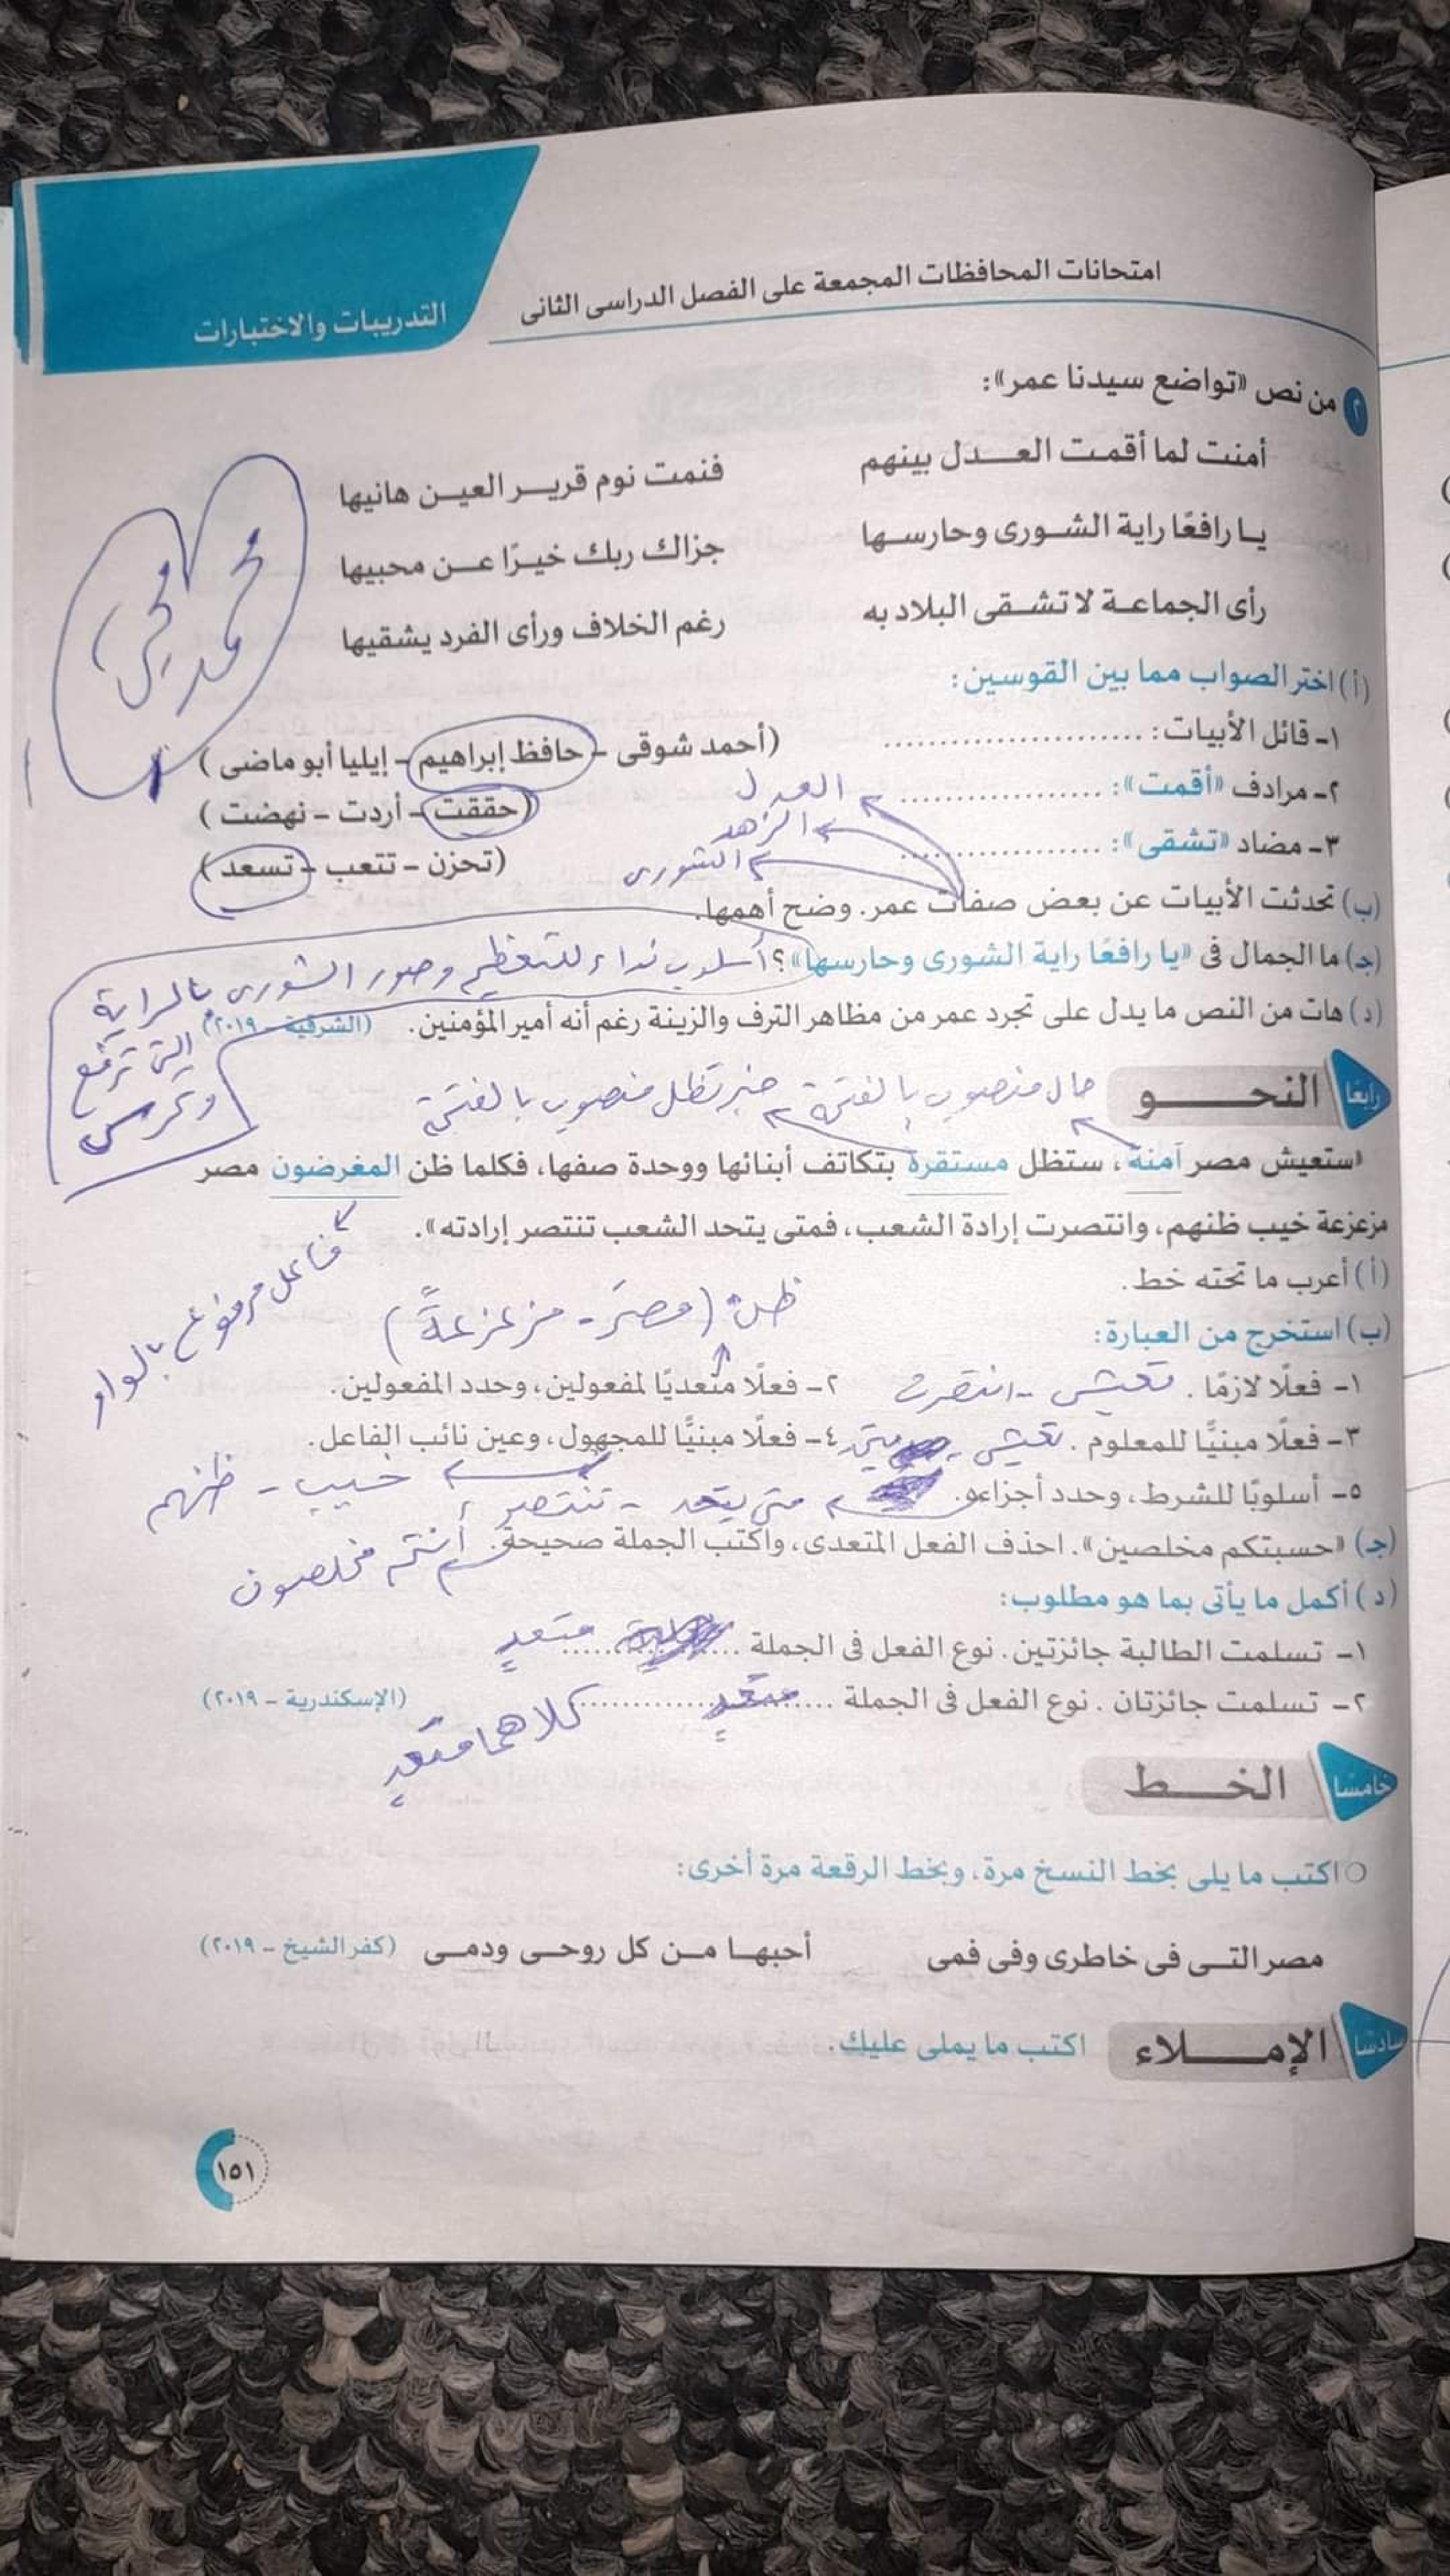 امتحانات المحافظات المجمعة على الفصل الدراسى الثانى
التدريبات والاختبارات
٢ من نص «تواضع سيدنا عمر»:
أمنت لما أقمت العدل بينهم فنمت نوم قرير العين هانيها
يا رافعًا راية الشورى وحارسها جزاك ربك خيرًا عن محبيها
رأى الجماعة لا تشقى البلاد به رغم الخلاف ورأى الفرد يشقيها
محمد
(أ) اختر الصواب مما بين القوسين:
١- قائل الأبيات: .................... (أحمد شوقى - حافظ إبراهيم - إيليا أبو ماضى)
٢- مرادف «أقمت»: .................... (حققت - أردت - نهضت)
العدل
٣- مضاد «تشقى»: .................... (تحزن - تتعب - تسعد)
الزهد
الشورى
(ب) تحدثت الأبيات عن بعض صفات عمر. وضح أهمها.
(جـ) ما الجمال فى «يا رافعًا راية الشورى وحارسها»؟ أسلوب نداء للتعظيم وصور الشورى بالراية
التى ترفع
وتحرس
(د) هات من النص ما يدل على تجرد عمر من مظاهر الترف والزينة رغم أنه أمير المؤمنين. (الشرقية - ٢٠١٩)
رابعًا النحـــو
حال منصوب بالفتحة خبر تظل منصوب بالفتحة
«ستعيش مصر آمنة، ستظل مستقرة بتكاتف أبنائها ووحدة صفها، فكلما ظن المغرضون مصر
مزعزعة خيب ظنهم، وانتصرت إرادة الشعب، فمتى يتحد الشعب تنتصر إرادته».
فاعل مرفوع بالواو
(أ) أعرب ما تحته خط.
ظن (مصرَ - مزعزعةً)
(ب) استخرج من العبارة:
١- فعلًا لازمًا. تعيش - انتصرت ٢- فعلًا متعديًا لمفعولين، وحدد المفعولين.
٣- فعلًا مبنيًّا للمعلوم. تعيش ٤- فعلًا مبنيًّا للمجهول، وعين نائب الفاعل.
خيب - ظنهم
٥- أسلوبًا للشرط، وحدد أجزاءه. متى يتحد - تنتصر
(جـ) «حسبتكم مخلصين». احذف الفعل المتعدى، واكتب الجملة صحيحة. أنتم مخلصون
(د) أكمل ما يأتى بما هو مطلوب:
١- تسلمت الطالبة جائزتين. نوع الفعل فى الجملة .................... متعدٍ
٢- تسلمت جائزتان. نوع الفعل فى الجملة .................... متعدٍ (الإسكندرية - ٢٠١٩)
كلاهما متعدٍ
خامسًا الخـــط
اكتب ما يلى بخط النسخ مرة، وبخط الرقعة مرة أخرى:
مصر التى فى خاطرى وفى فمى أحبها من كل روحى ودمى (كفر الشيخ - ٢٠١٩)
سادسًا الإمـــلاء اكتب ما يملى عليك.
١٥١